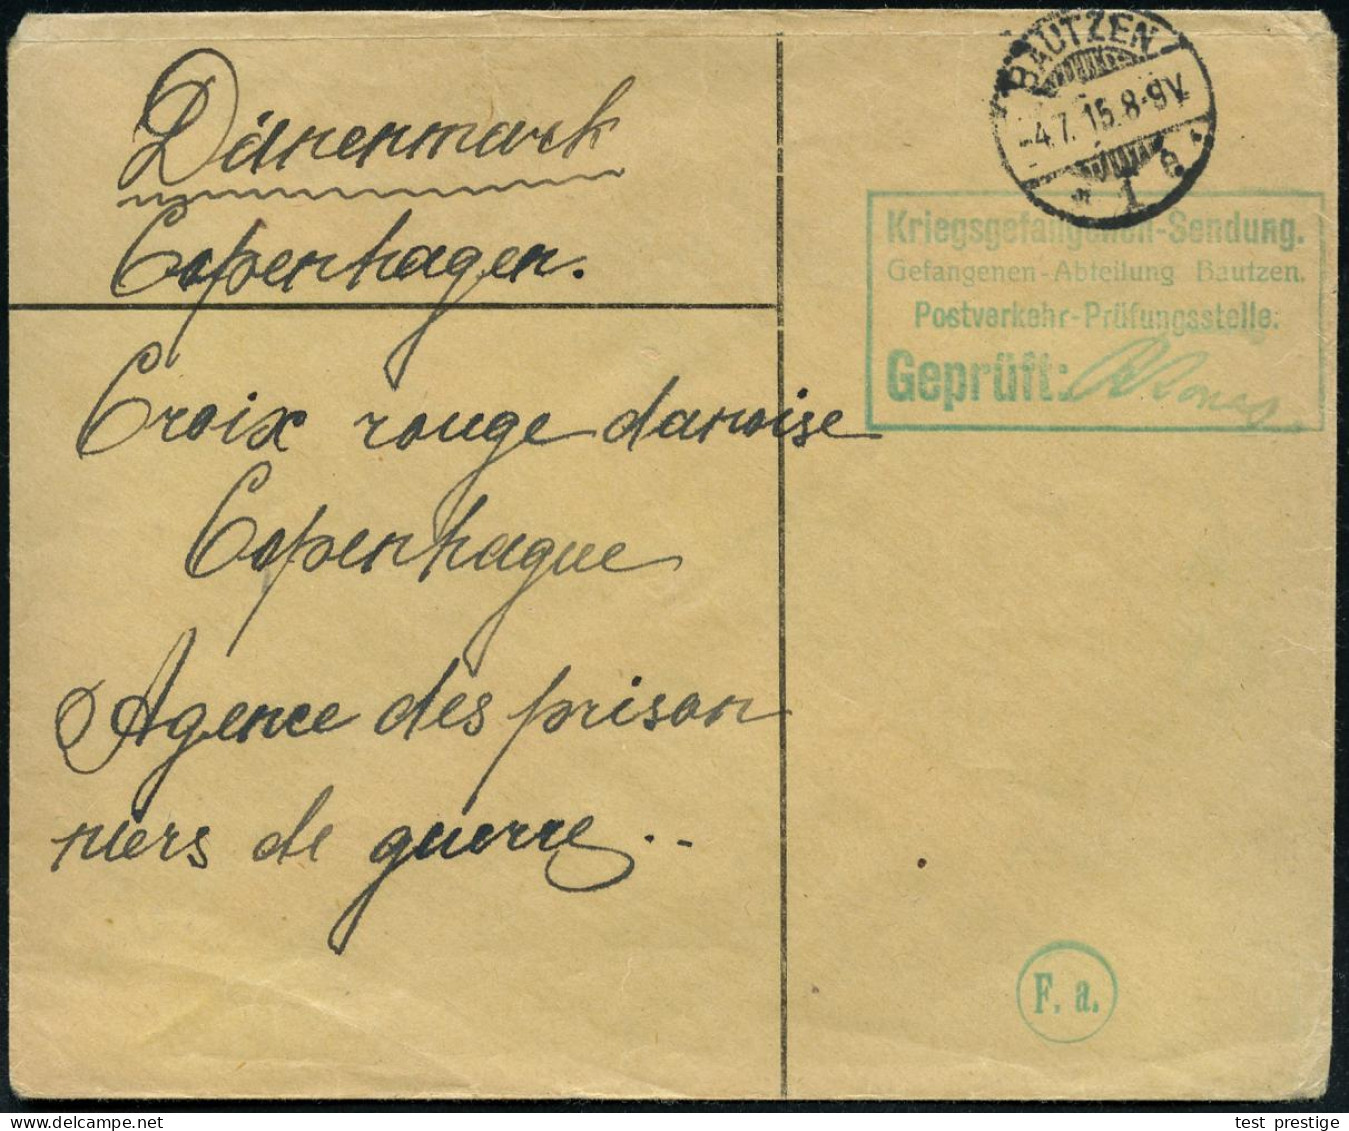 Dänemark
Copenhagen.
Croix rouge danoise
Copenhague
Agence des prison
niers de guerre..
BAUTZEN
-4.7.15.8-9V.
* 1 e *
Kriegsgefangenen-Sendung.
Gefangenen-Abteilung Bautzen.
Postverkehr-Prüfungsstelle.
Geprüft:
F. a.
test prestige